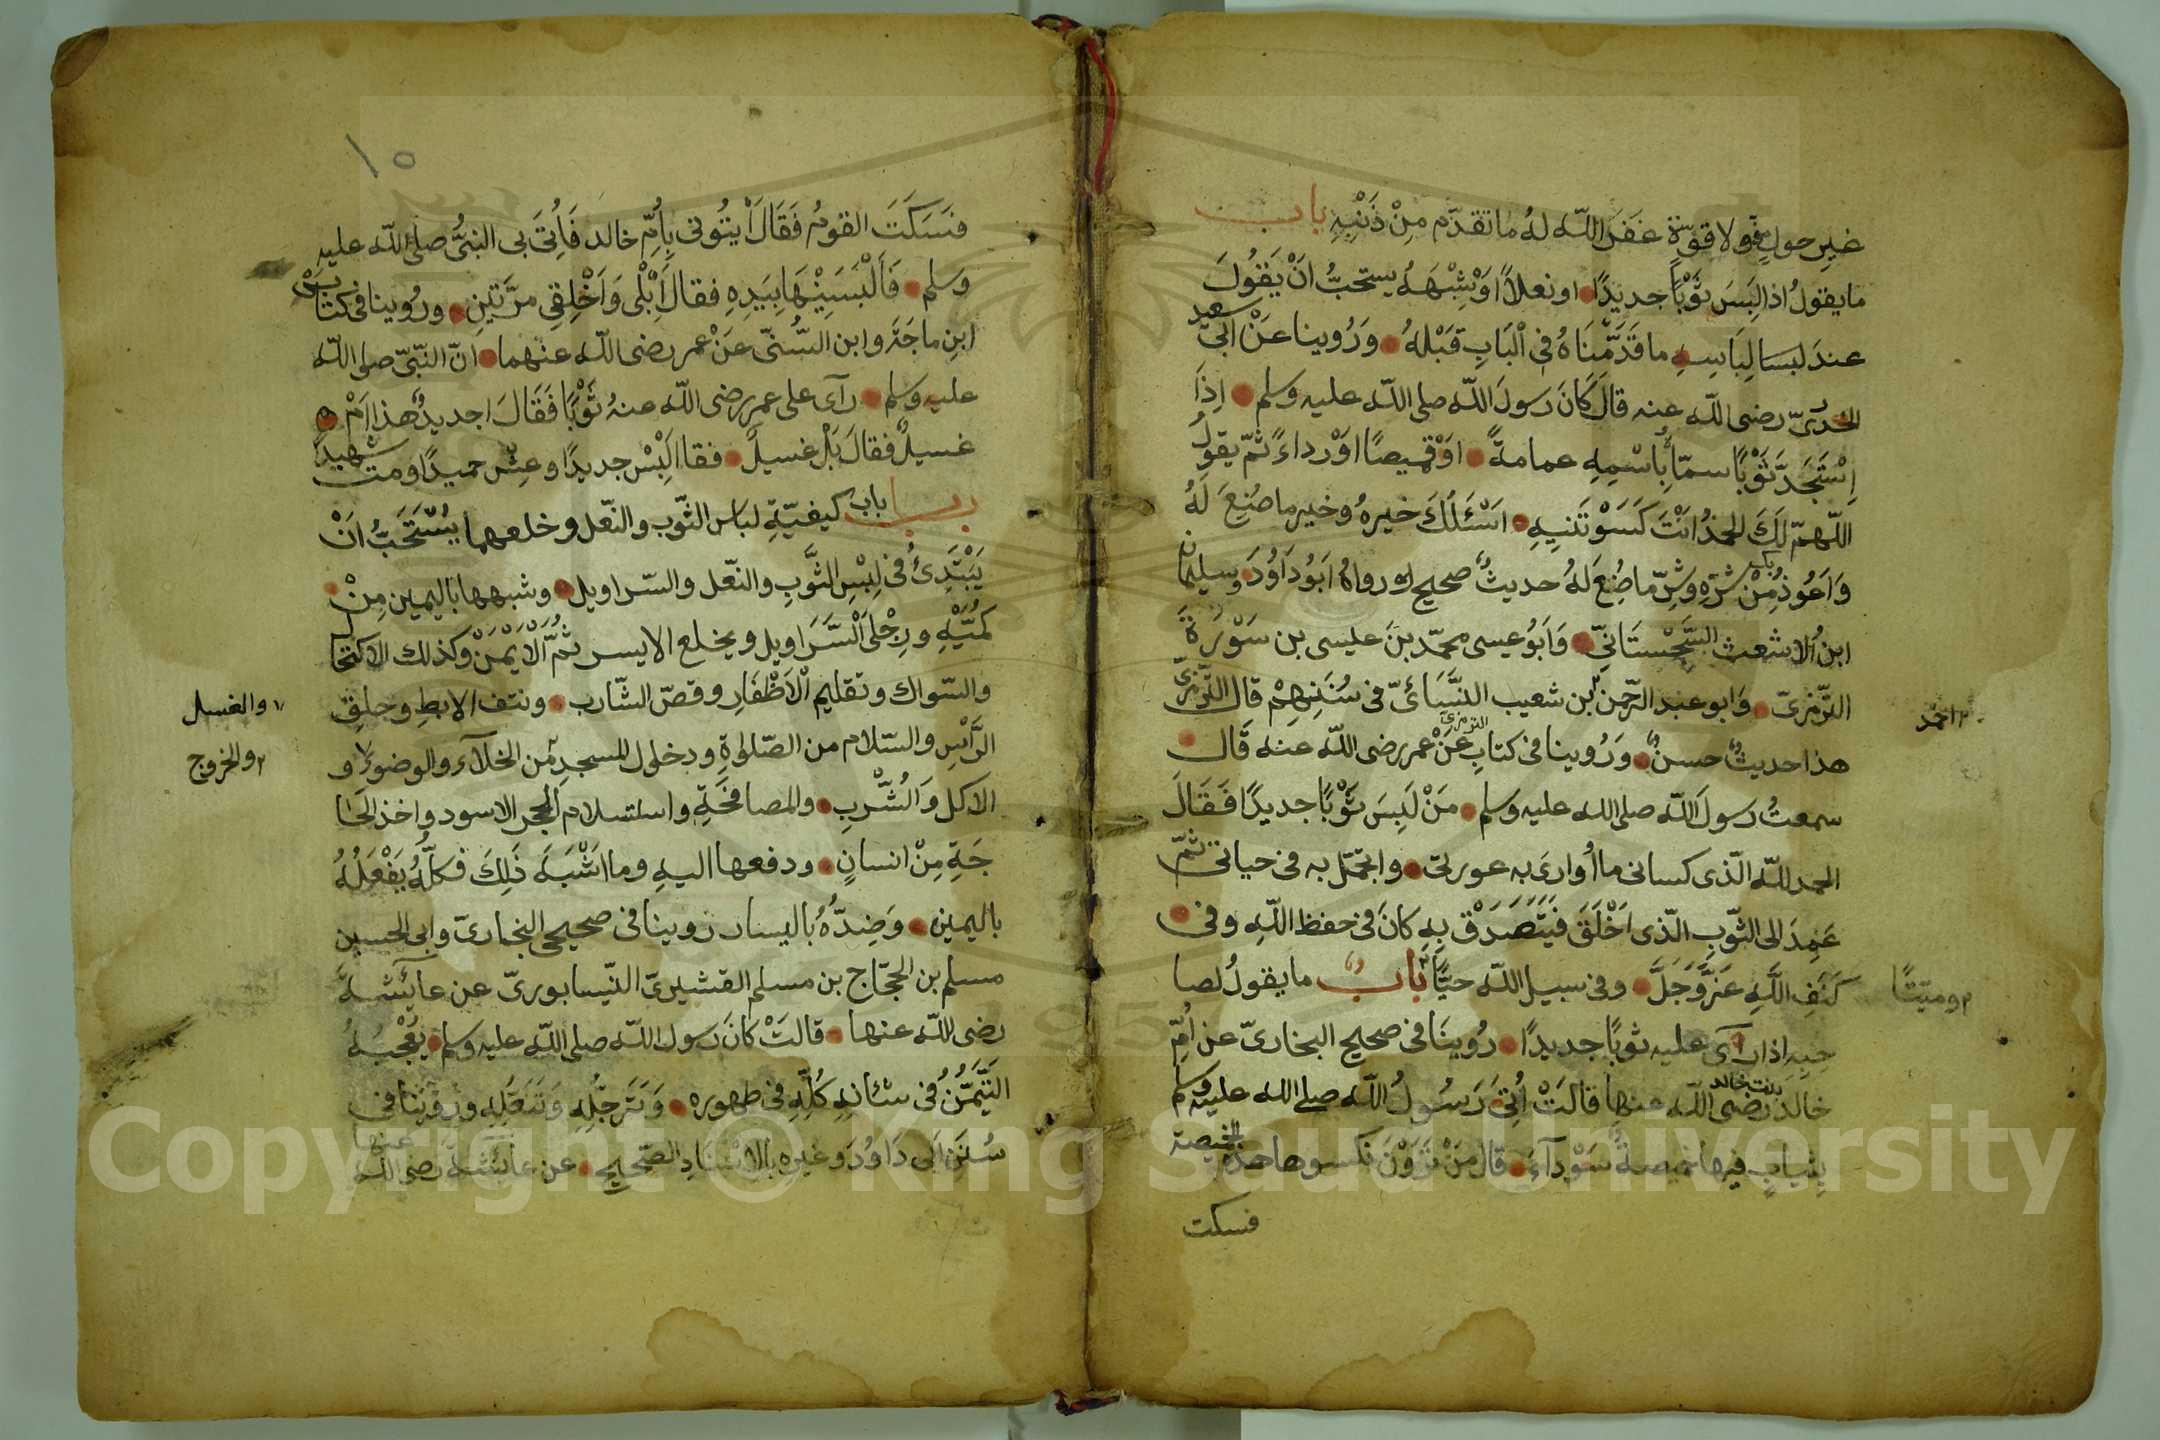 غيرِ حولٍ منّى ولا قوّة غفَرَ اللّه لهُ ما تقدّم مِنْ ذَنْبِهِ باب
ما يقولُ اذا لَبِسَ ثَوْباً جديدًا او نعلاً او شِبْهَهُ يستحبُّ انْ يَقُولَ
عندَ لباسِهِ ما قَدَّمْنَاهُ في الْبَابِ قَبْلهُ ورُوينا عَنْ ابى سعيد
الخدرىّ رضى اللّه عنه قال كَانَ رَسولَ اللّه صلى اللّه عليه وسلم اِذَا
اِسْتَجَدَّ ثَوْبًا سمّاهُ بِاسْمِهِ عمامةً اوْ قميصًا اوْ رداءً ثمّ يقولُ
اللّهمّ لَكَ الحمدُ انْتَ كَسَوْتَنِيهِ اسْئَلُكَ خيرهُ وخير ما صُنِعَ لهُ
وَاَعُوذُ بك مِنْ شرّهِ وشرّ ما صُنِعَ لهُ حديثٌ صحيح رواهُ ابَوُ دَاوُدَ سليمان
ابنُ الاشعث السَّجِسْتَانِىّ وَابَوُ عيسى محمّد بن عيسى بن سَوْرَةَ
التّرمزىّ وَابو عبد الرّحمن بن شعيب النَّسَائىّ فى سُنَنِهِمْ قال التّرمزىّ
هذا حديثٌ حسنٌ ورُوينا فى كتابِ الترمزى عَنْ عمر رضى اللّه عنه قَال
سمعتُ رسولَ اللّه صلى اللّه عليه وسلم مَنْ لَبِسَ ثَوْبًا جديدًا فَقَالَ
الحمد للّه الّذى كسانى ما اُوارى به عورتى واتجمّل به فى حياتى ثمّ
عَمِدَ الى الثّوبِ الّذى اَخْلَقَ فَيَتَصَدَّقَ بِهِ كانَ فى حفظ اللّهِ وفى
كَنَفِ اللَّهِ عَزَّ وَجَلَّ وفى سبيل اللّه حيًّا باب ما يقولُ لصا
حِبِهِ اذا رآى عليه ثوبًا جديدًا رُوينَا فى صحيح البخارىّ عن اُمّ
خالد بنت خالد رضى اللّه عنها قالَتْ اُتِىَ رَسُولُ اللّه صلى اللّه عليه وسلم
بِثيابٍ فيها خميصةٌ سَوْدآءَ قال مَنْ تَرَوْنَ نكسوها هذه الخميصة
فسكت
٢ احمد
٢ وميّتًا
١٥
فَسَكَتَ القومُ فَقَالَ ايتُونى بِاُمِّ خالد فَاُتِىَ بى النبىُّ صلى اللّه عليه
وسلم فَاَلْبَسَنِيْهَا بِيَدِهِ فقالَ اَبْلى وَاَخْلِقى مرّتينِ ورُوينا فى كتاب
ابنِ ماجَةَ وابن السُّنّى عَنْ عمر رضى اللّه عنهما انّ النّبىّ صلى اللّه
عليه وسلم رآى على عمر رضى اللّه عنهُ ثَوْبًا فَقَالَ اجديدٌ هذا اَمْ
غسيلٌ فقالَ بَلْ غسيلٌ فقال اَلْبِسْ جديدًا وعِشْ حميدًا ومت شهيدًا
باب كيفيّةِ لباس الثّوب والنّعل وخلعهما يُسْتَحَبُّ اَنْ
يَبْتَدِئُ فى لبْسِ الثَّوبِ والنّعل والسّراويل وشبهها باليمين مِنْ
كمّيْهِ ورِجْلَى السَّرَاويل ويخلع الايسر ثُمَّ الْاَيْمَنَ وكذلك الاكتحال
والسّواك وتقليم الْاَظْفَارِ وقصّ الشّارب ونتف الابطِ وحلق
الرَّأسِ والسّلام من الصّلوةِ ودخول المسجدِ من الخلآءِ والوضوء و
الاكل وَالشُّرْبِ والمصافحَةِ واستسلام الحجر الاسود واخذ الحا
جَةِ مِنْ انسانٍ ودفعها اليهِ وما اشْبَهَ ذَلِكَ فكلّهُ يَفْعَلُهُ
باليمين وَضِدُّهُ باليسار روينا فى صحيحى البخارىّ وابى الحسين
مسلم بن الحجّاج بن مسلم القشيرىّ النّيسابورىّ عن عائشة
رضى اللّه عنها قالتْ كانَ رسول اللّه صلى اللّه عليه وسلم يُعْجِبُهُ
التَّيَمُّنُ فى شانهِ كُلِّهِ فى طهوره وَتَرَجُّلِهِ وَتَنَعُّلِهِ وروينا فى
سُنَنِ اَبى دَاوُدَ وغيرِه بالاسْنَادِ الصّحيحِ عن عائشة رضى اللّه عنها
١ والغسل
٢ والخروج
Copyright © King Saud University